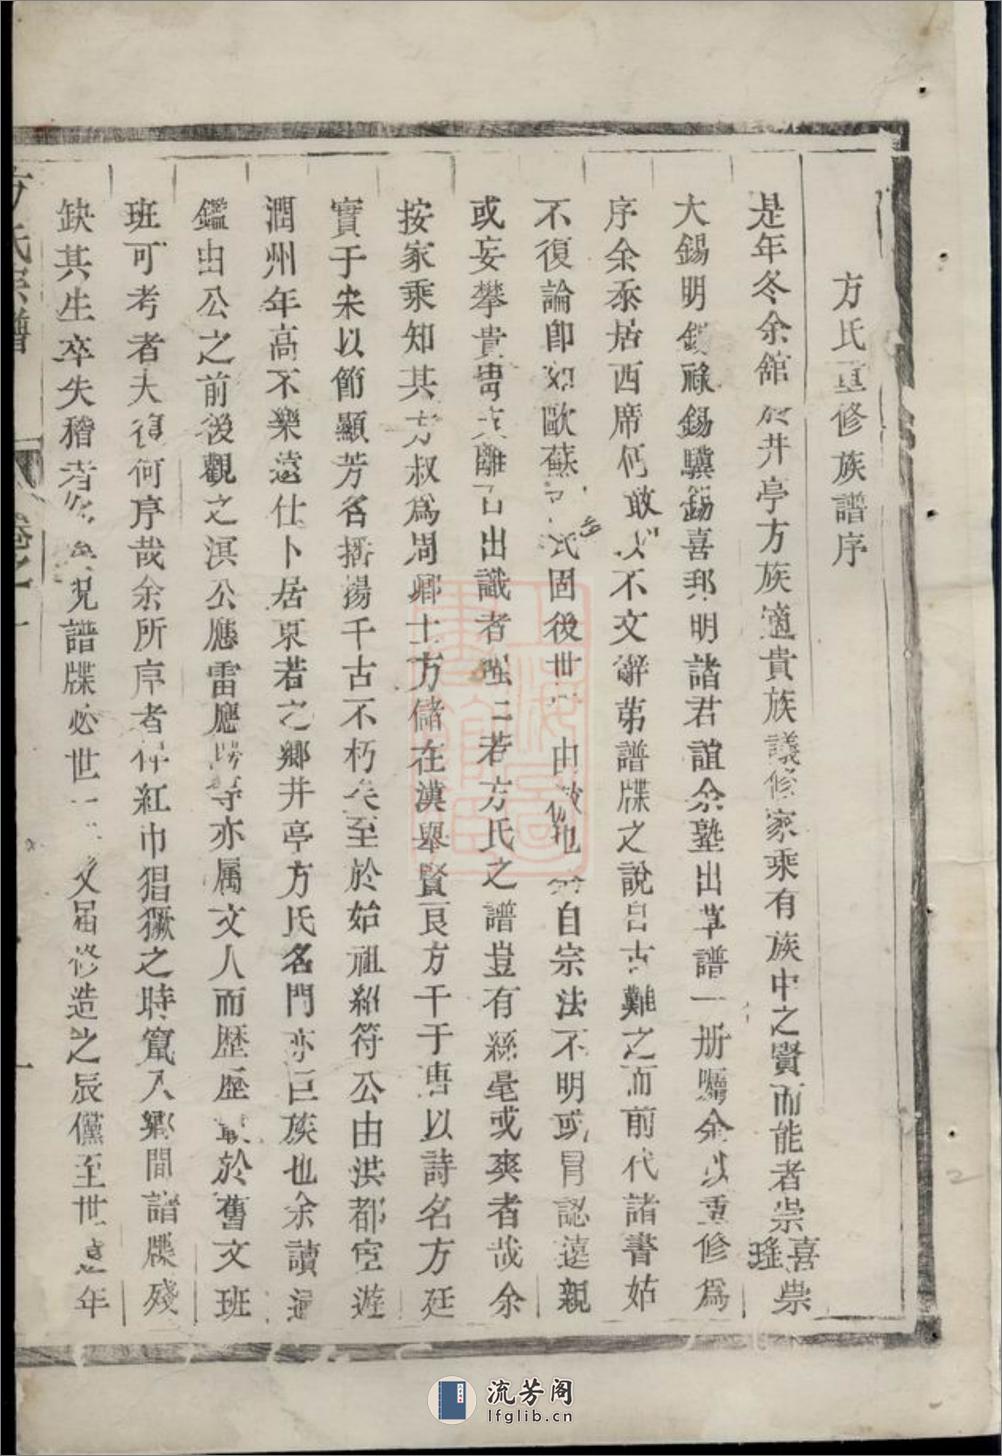 方氏重修族譜序
是年冬余館於井亭方族適貴族議修家乘有族中之賢而能者崇喜崇瑤
大錫明錢祿錫驥錫喜邦明諸君誼余塾出草譜一册囑余以重修爲
序余忝居西席何敢以不文辭第譜牒之說自古難之而前代諸書姑
不復論即如歐蘇氏固後世由倣也余自宗法不明或冒認遠親
或妄攀貴胄支離百出識者
若方氏之譜豈有絲毫或爽者哉余
按家乘知其方叔爲周卿士方儲在漢舉賢良方干于唐以詩名方廷
實于宋以節顯芳名播揚千古不朽矣至於始祖紹符公由洪都宦遊
潤州年高不樂遠仕卜居東若之鄉井亭方氏名門亦巨族也余讀通
鑑由公之前後觀之溟公應雷應陽等亦属文人而歷歷載於舊文班
班可考者夫復何序哉余所序者伴紅巾猖獗之時竄入鄉間譜牒殘
缺其生卒失稽者
况譜牒必世一
届修造之辰儻至世遠年
方氏宗譜
卷之一
一
流芳阁
lfglib.cn